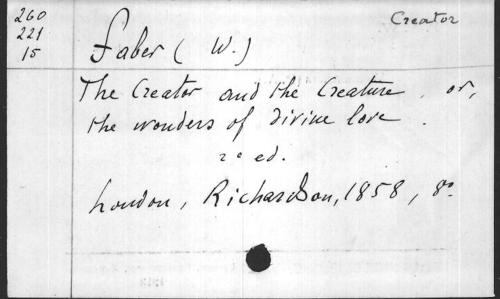 260
221
15
Creator
Faber (W.)
The Creator and the Creature, or,
the wonders of divine love.
2e ed.
London, Richardson, 1858, 8o.